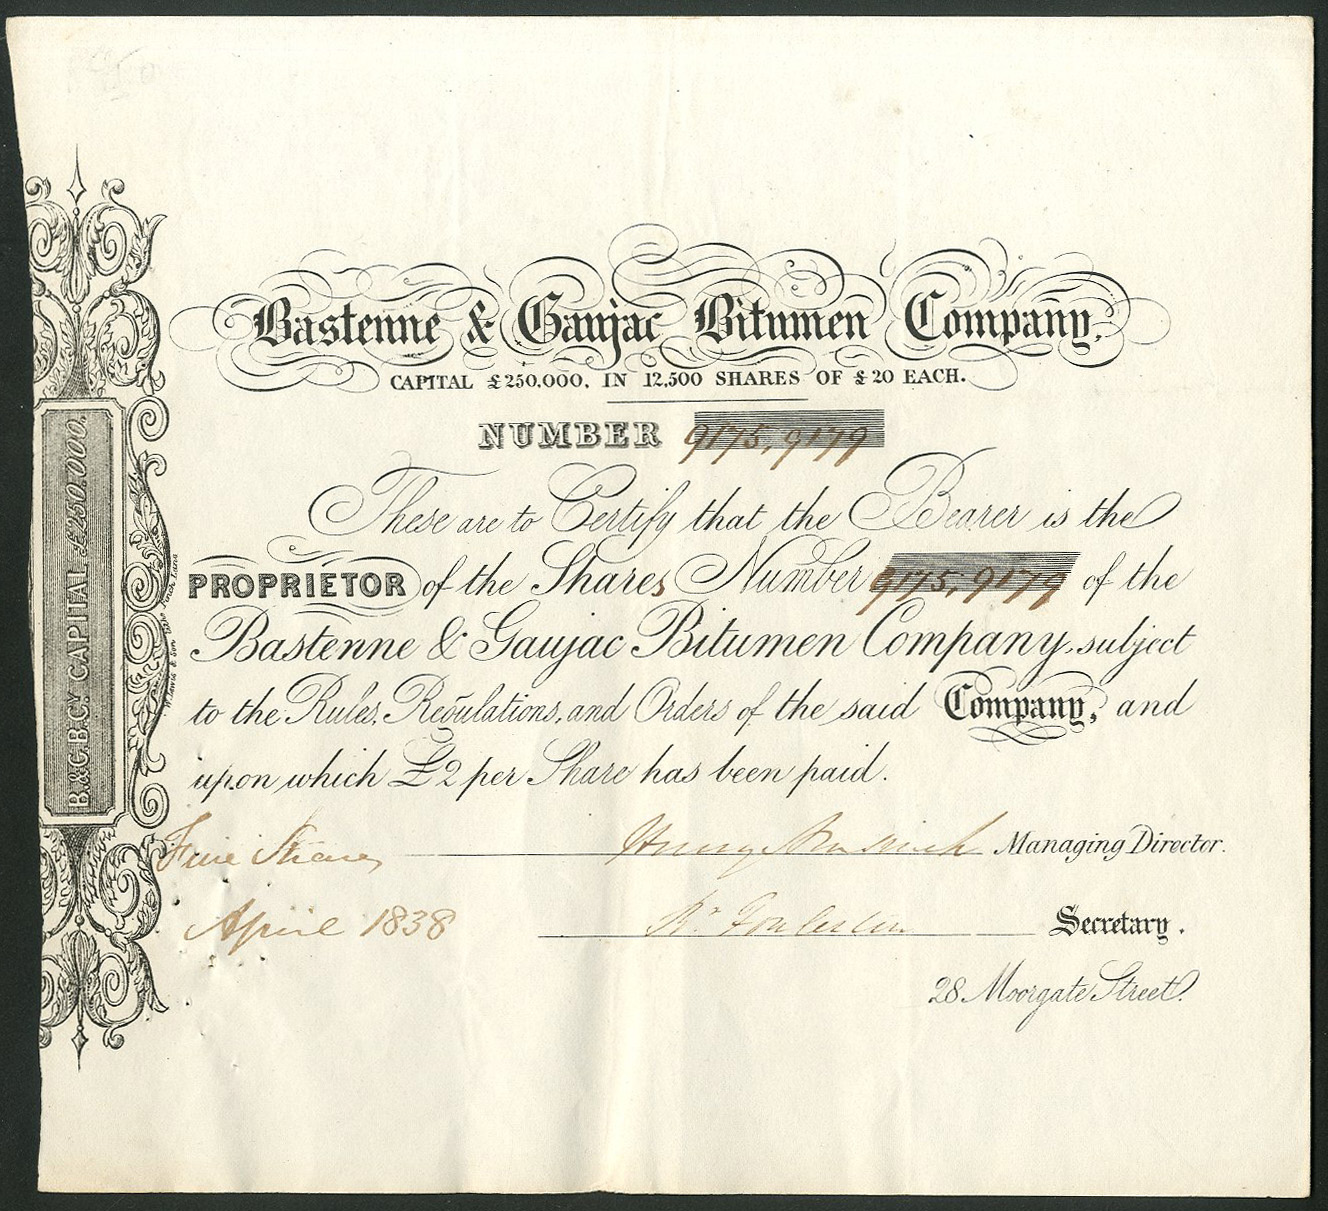 Bastenne & Gaujac Bitumen Company,
CAPITAL £250.000, IN 12,500 SHARES OF £20 EACH.
NUMBER 9175, 9179
These are to Certify that the Bearer is the
PROPRIETOR of the Shares Number 9175, 9179 of the
Bastenne & Gaujac Bitumen Company, subject
to the Rules, Regulations, and Orders of the said Company, and
upon which £2 per Share has been paid.
Five Shares Managing Director.
April 1838 Secretary.
28. Moorgate Street.
B.&G.B.CY. CAPITAL £250.000.
Finch Lane